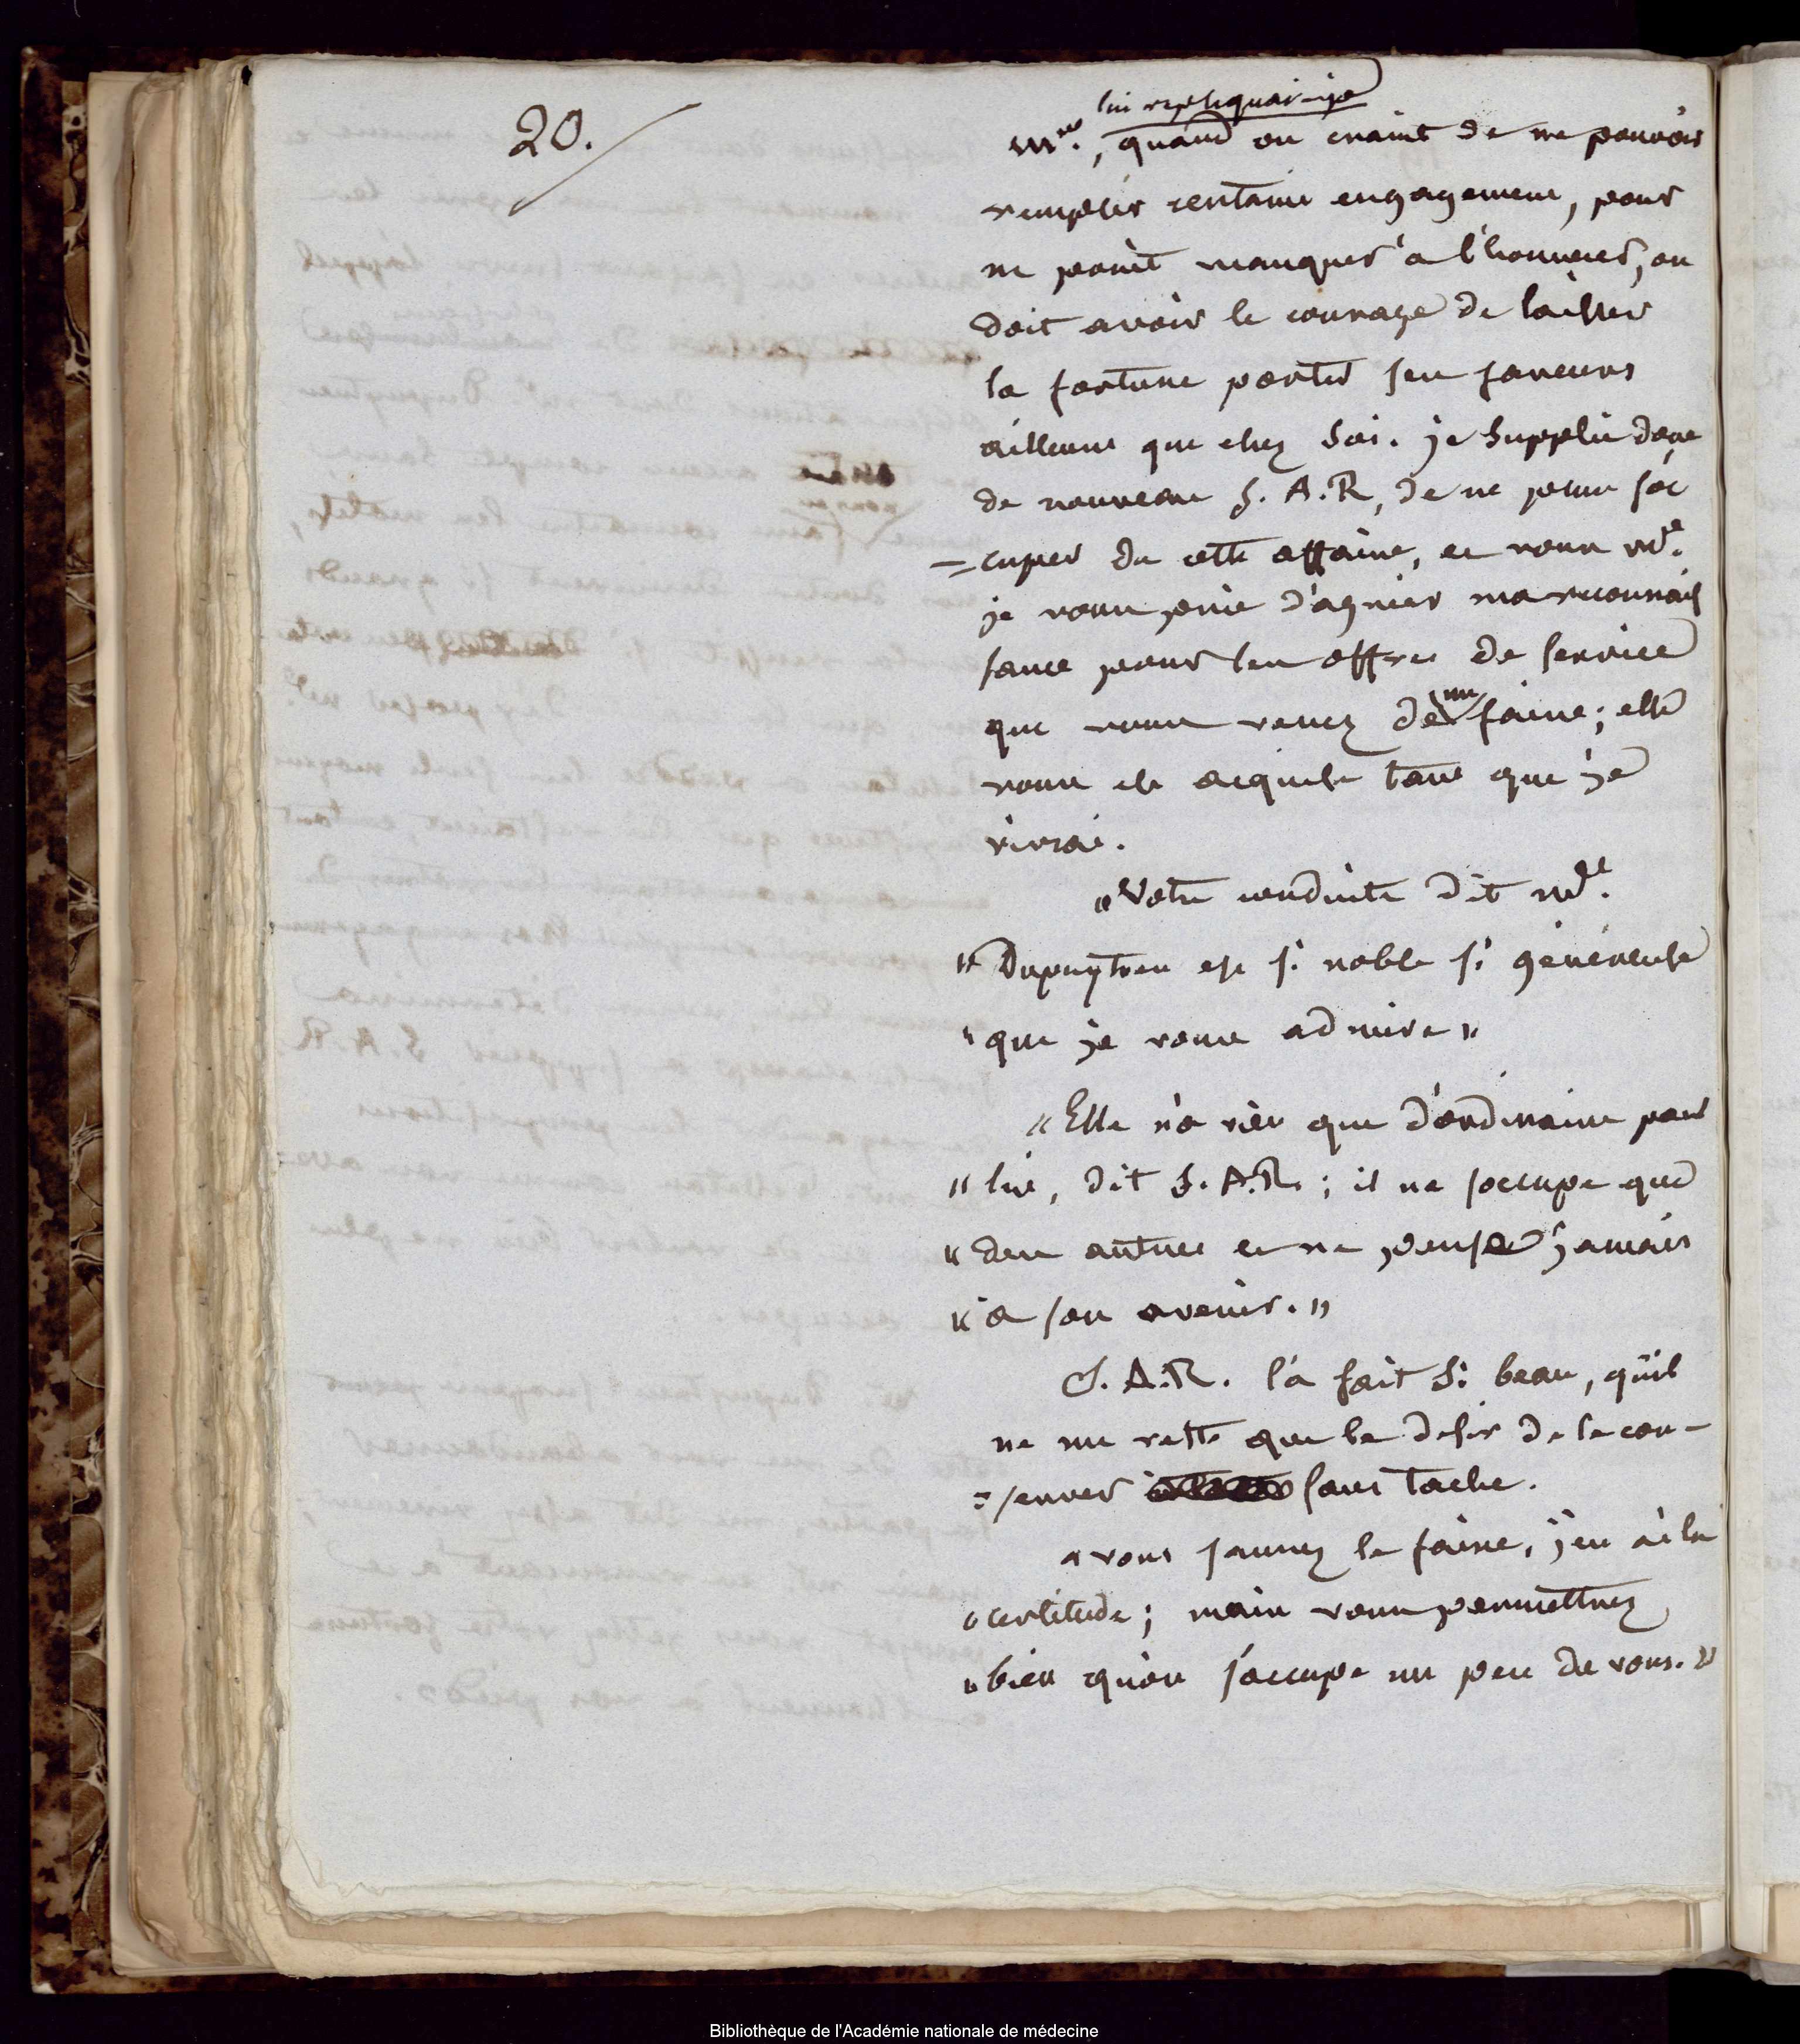 20.
lui repliquai-je
Mme, quand on craint de ne pouvoir
remplir certains engagemens, pour
ne point manquer à l'honneur, on
doit avoir le courage de laisser
la fortune porter ses faveurs
ailleurs que chez soi. je supplie donc
de nouveau S. A. R, de ne point s'oc
=cuper de cette affaire, et vous Mde.
je vous prie d'agréer ma reconnais
sance pour les offres de service
que vous venez de me faire; elle
vous est acquise tant que je
vivrai.
« Votre conduite dit Mde.
« Dupuytren est si noble si généreuse
« que je vous admire »
« Elle n'a rien que d'ordinaire pour
« lui, dit S. A. R.; il ne s'occupe que
« des autres et ne pense jamais
« à son avenir. »
S. A. R. l'a fait si beau, qu'il
ne me reste que le desir de le con-
=server sans tache.
« vous saurez le faire, j'en ai la
« certitude; mais vous permettrez
« bien qu'on s'occupe un peu de vous. »
Bibliothèque de l'Académie nationale de médecine